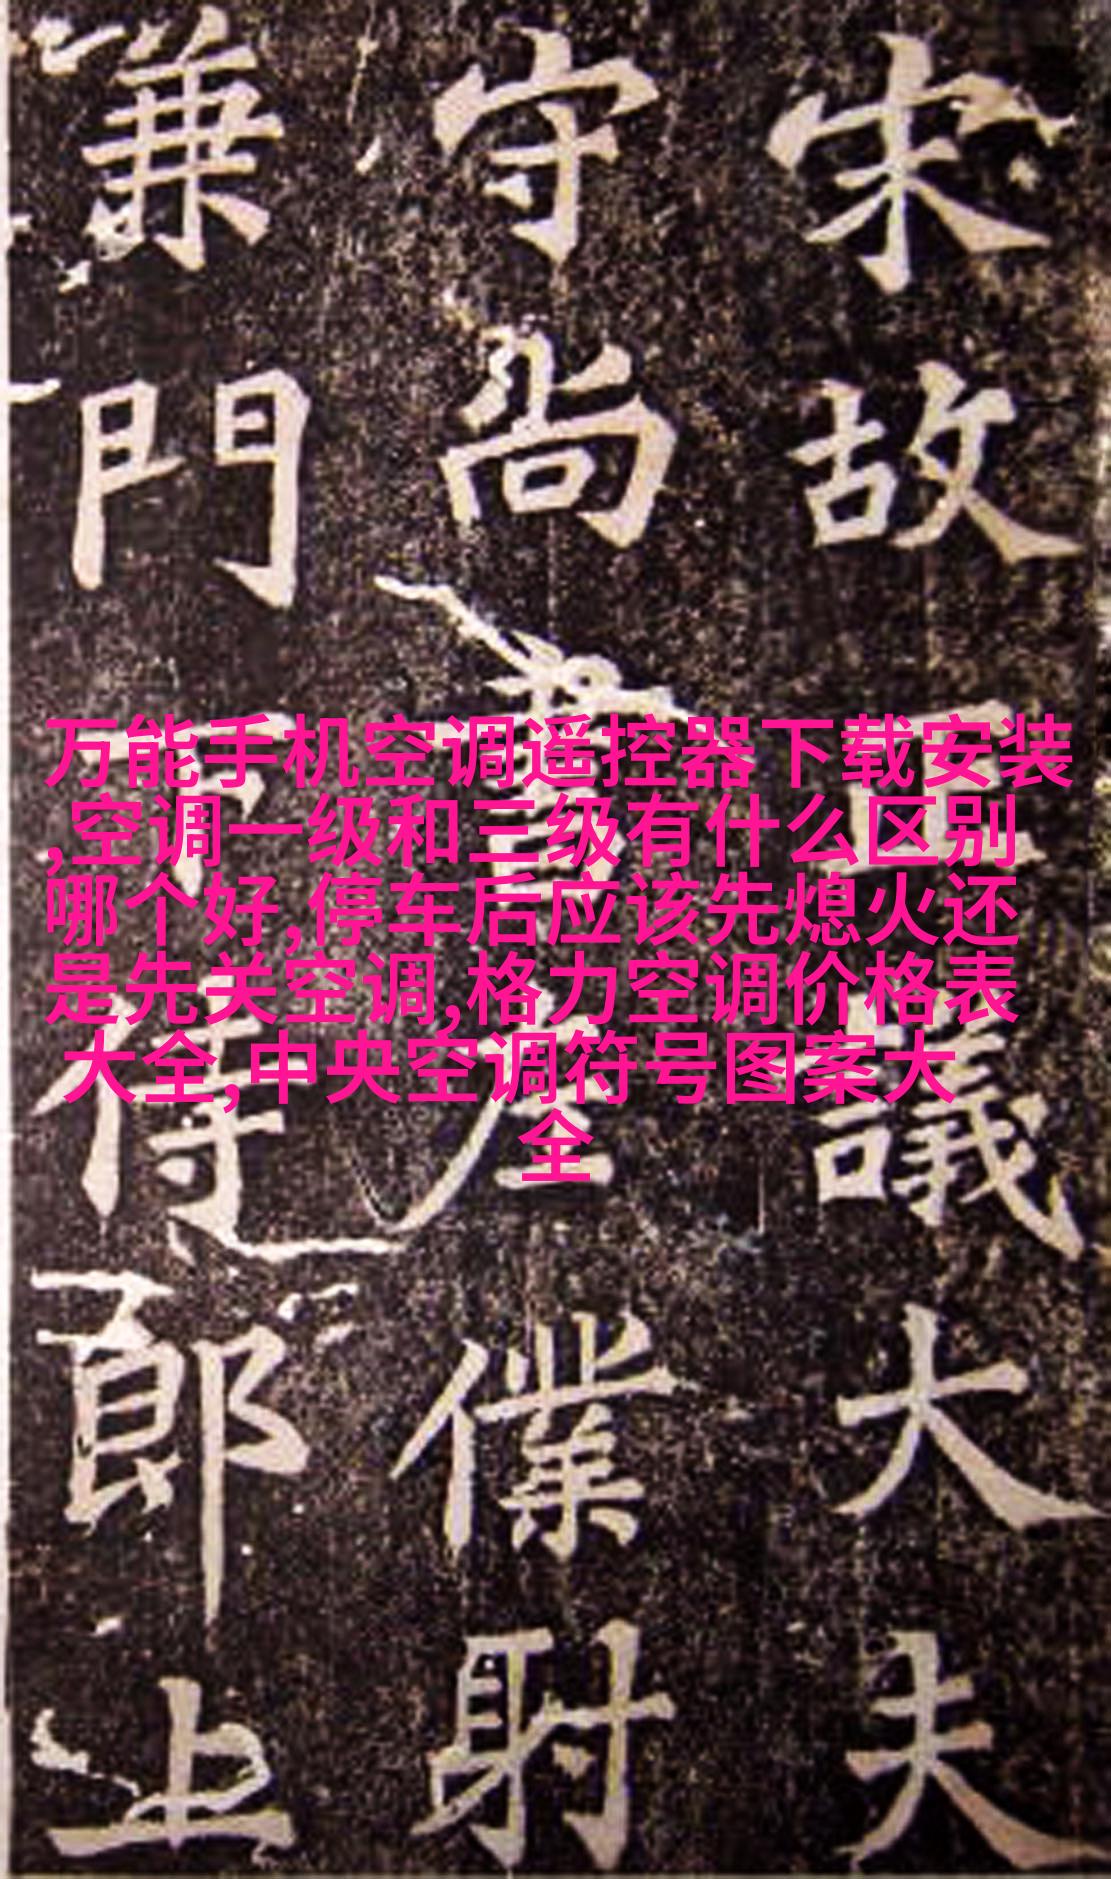 万能手机空调遥控器下载安装
,空调一级和三级有什么区别
哪个好,停车后应该先熄火还
是先关空调,格力空调价格表
大全,中央空调符号图案大
全
宋故正議大夫
守尚書左僕射
兼門下侍郎上